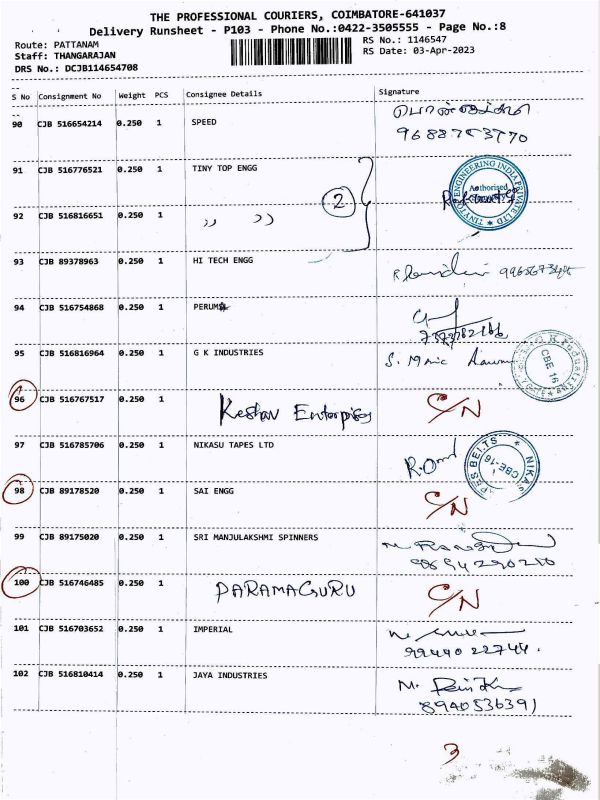 THE PROFESSIONAL COURIERS, COIMBATORE-641037
Delivery Runsheet - P103 - Phone No.:0422-3505555 - Page No.:8
Route: PATTANAM
RS No.: 1146547
Staff: THANGARAJAN
RS Date: 03-Apr-2023
DRS No.: DCJB114654708
S No Consignment No Weight PCS Consignee Details Signature
90 CJB 516654214 0.250 1 SPEED
9688753770
91 CJB 516776521 0.250 1 TINY TOP ENGG
2
TINYTOP ENGINEERING INDIA PRIVATE LTD
Authorised
92 CJB 516816651 0.250 1 " "
93 CJB 89378963 0.250 1 HI TECH ENGG
94 CJB 516754868 0.250 1 PERUMA
7373782166
95 CJB 516816964 0.250 1 G K INDUSTRIES
CBE 16
96 CJB 516767517 1 Keshav Enterprises C/N
97 CJB 516785706 0.250 1 NIKASU TAPES LTD
BELTS * NIKAS
CBE-16
98 CJB 89178520 0.250 1 SAI ENGG C/N
99 CJB 89175020 0.250 1 SRI MANJULAKSHMI SPINNERS
9894290210
100 CJB 516746485 0.250 1 PARAMAGURU C/N
101 CJB 516703652 0.250 1 IMPERIAL
99440 22744.
102 CJB 516810414 0.250 1 JAYA INDUSTRIES
M.
8940536391
3